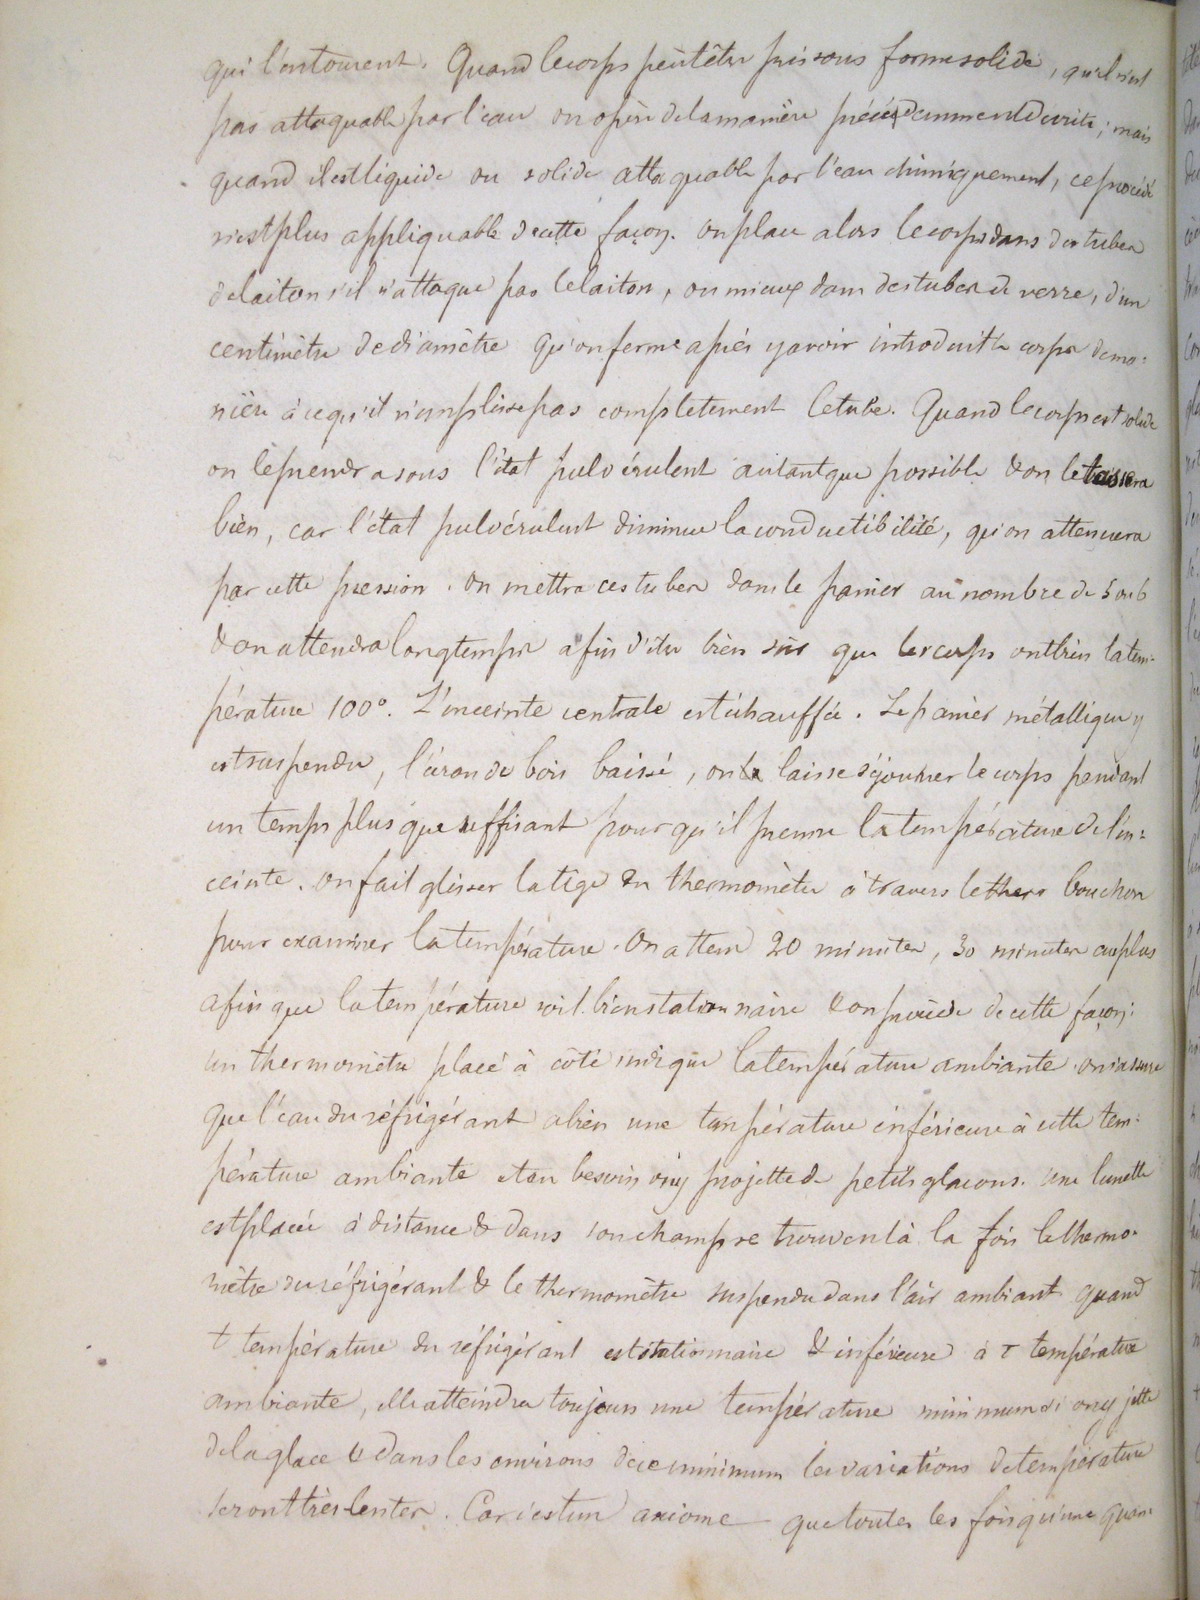 qui l'entourent. Quand le corps peut être pris sous forme solide, qu'il n'est
pas attaquable par l'eau on opère de la manière précédemment décrite; mais
quand il est liquide ou solide attaquable par l'eau chimiquement, ce procédé
n'est plus appliquable de cette façon. on place alors le corps dans des tubes
de laiton s'il n'attaque pas le laiton, ou mieux dans des tubes de verre, d'un
centimètre de diamètre qu'on ferme après y avoir introduit le corps de ma=
nière à ce qu'il n'emplisse pas completement le tube. Quand le corps est solide
on le prendra sous l'état pulvérulent autant que possible & on le tassera
bien, car l'état pulvérulent diminue la conductibilité, qu'on attenuera
par cette pression. on mettra ces tubes dans le panier au nombre de 5 ou 6
& on attendra longtemps afin d'être bien sûr que les corps ont bien la tem-
pérature 100°. L'enceinte centrale est échauffée. Le panier métallique y
est suspendu, l'écran de bois baissé, on laisse séjourner le corps pendant
un temps plus que suffisant pour qu'il prenne la température de l'en=
ceinte. on fait glisser la tige du thermomètre à travers le bouchon
pour examiner la température. On attend 20 minutes, 30 minutes au plus
afin que la température soit bien stationnaire & on procède de cette façon:
un thermomètre placé à côté indique la température ambiante. on s'assure
que l'eau du réfrigérant a bien une température inférieure à cette tem-
pérature ambiante et au besoin on y projette de petits glacons. une lunette
est placée à distance & dans son champ se trouvent à la fois le thermo-
mètre du réfrigérant & le thermomètre suspendu dans l'air ambiant quand
t température du réfrigérant est stationnaire & inférieure à T température
ambiante, elle atteindra toujours une température minimum si on y jette
de la glace & dans les environs de ce minimum les variations de température
seront très lentes. Car c'est un axiome que toutes les fois qu'une quan-